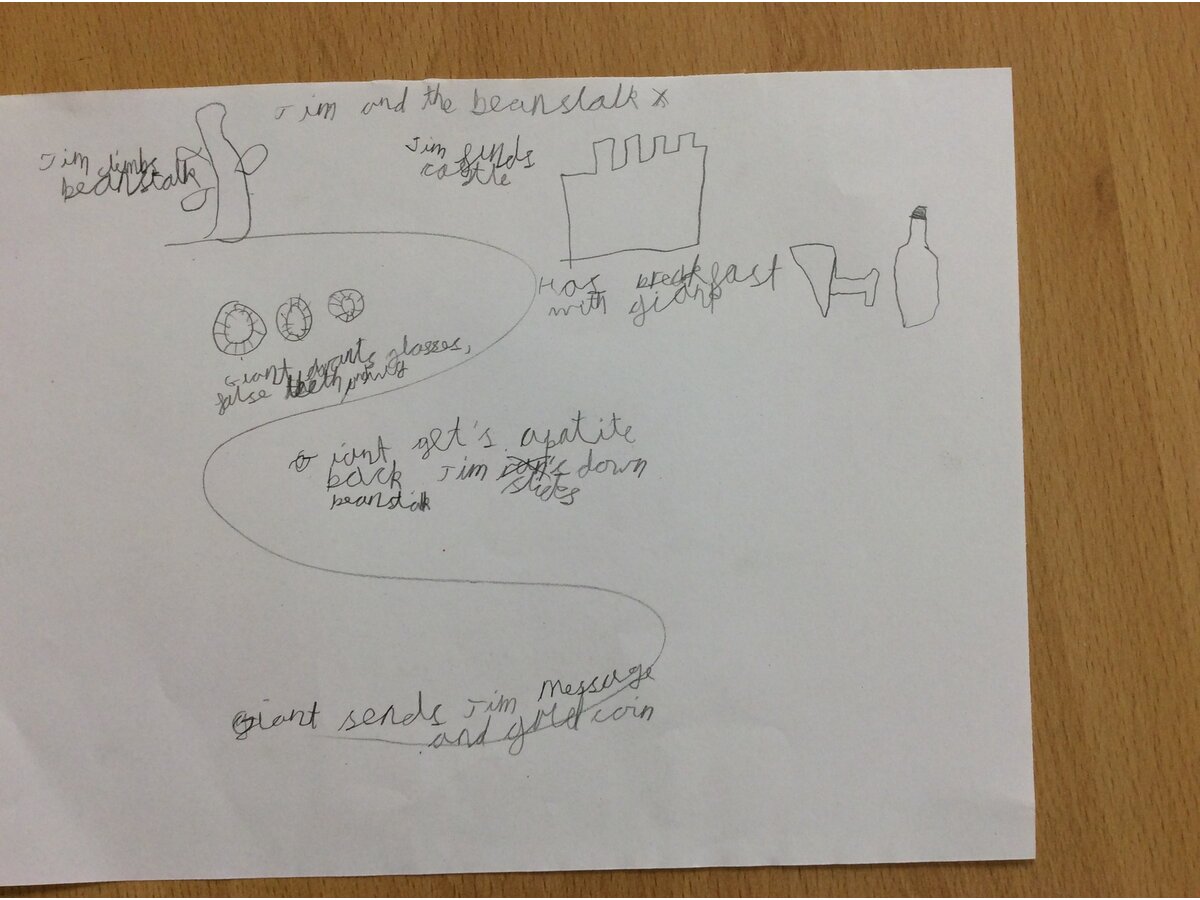 Jim and the beanstalk x
Jim climbs
beanstalk
Jim finds
castle
Has breakfast
with giant
Giant wants glasses,
false teeth and wig
Giant get's apatite
back Jim slides down
beanstalk
Giant sends Jim message
and gold coin